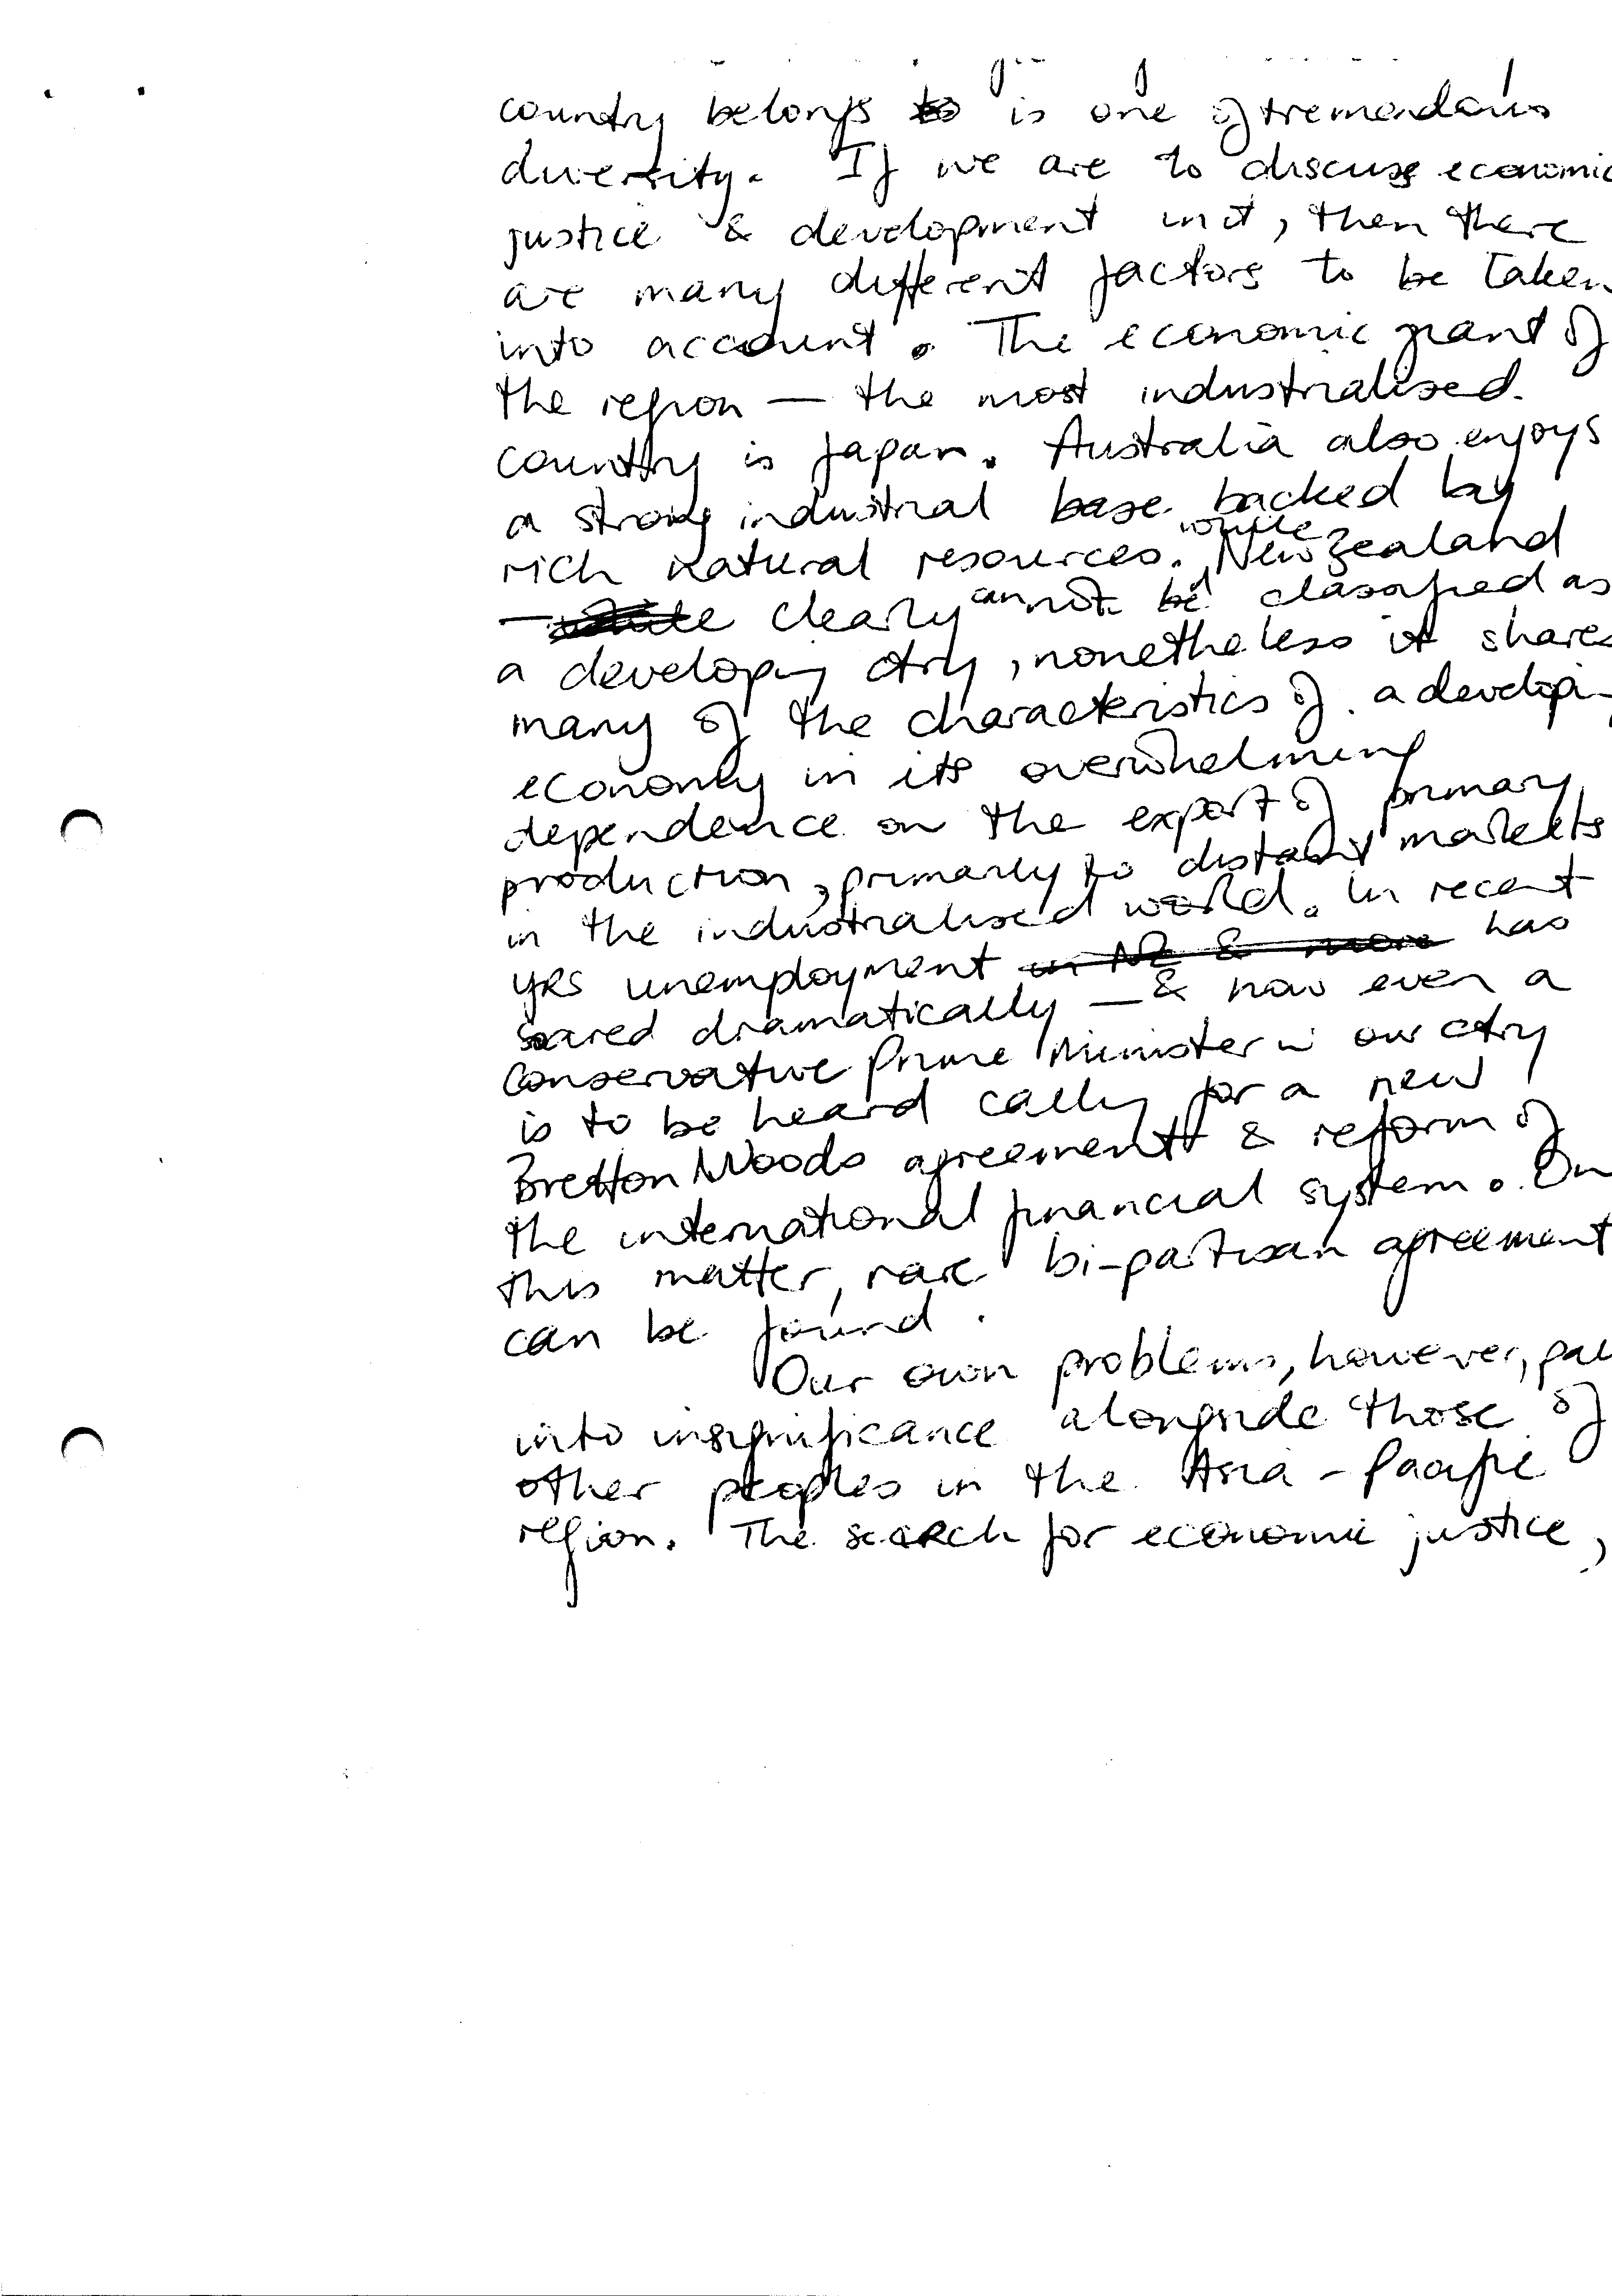 country belongs to is one of tremendous
diversity. If we are to discuss economic
justice & development in it, then there
are many different factors to be taken
into account. The economic giant of
the region — the most industrialised
country is Japan. Australia also enjoys
a strong industrial base backed by
rich natural resources. while New Zealand
— while clearly cannot be classified as
a developing ctry, nonetheless it shares
many of the characteristics of a developing
economy in its overwhelming
dependence on the export of primary
production, primarily to distant markets
in the industrialised world. In recent
yrs unemployment in NZ & more has
soared dramatically — & now even a
Conservative Prime Minister in our ctry
is to be heard calling for a new
Bretton Woods agreement & reform of
the international financial system. On
this matter, rare bi-partisan agreement
can be found.
Our own problems, however, pale
into insignificance alongside those of
other peoples in the Asia-Pacific
region. The search for economic justice,